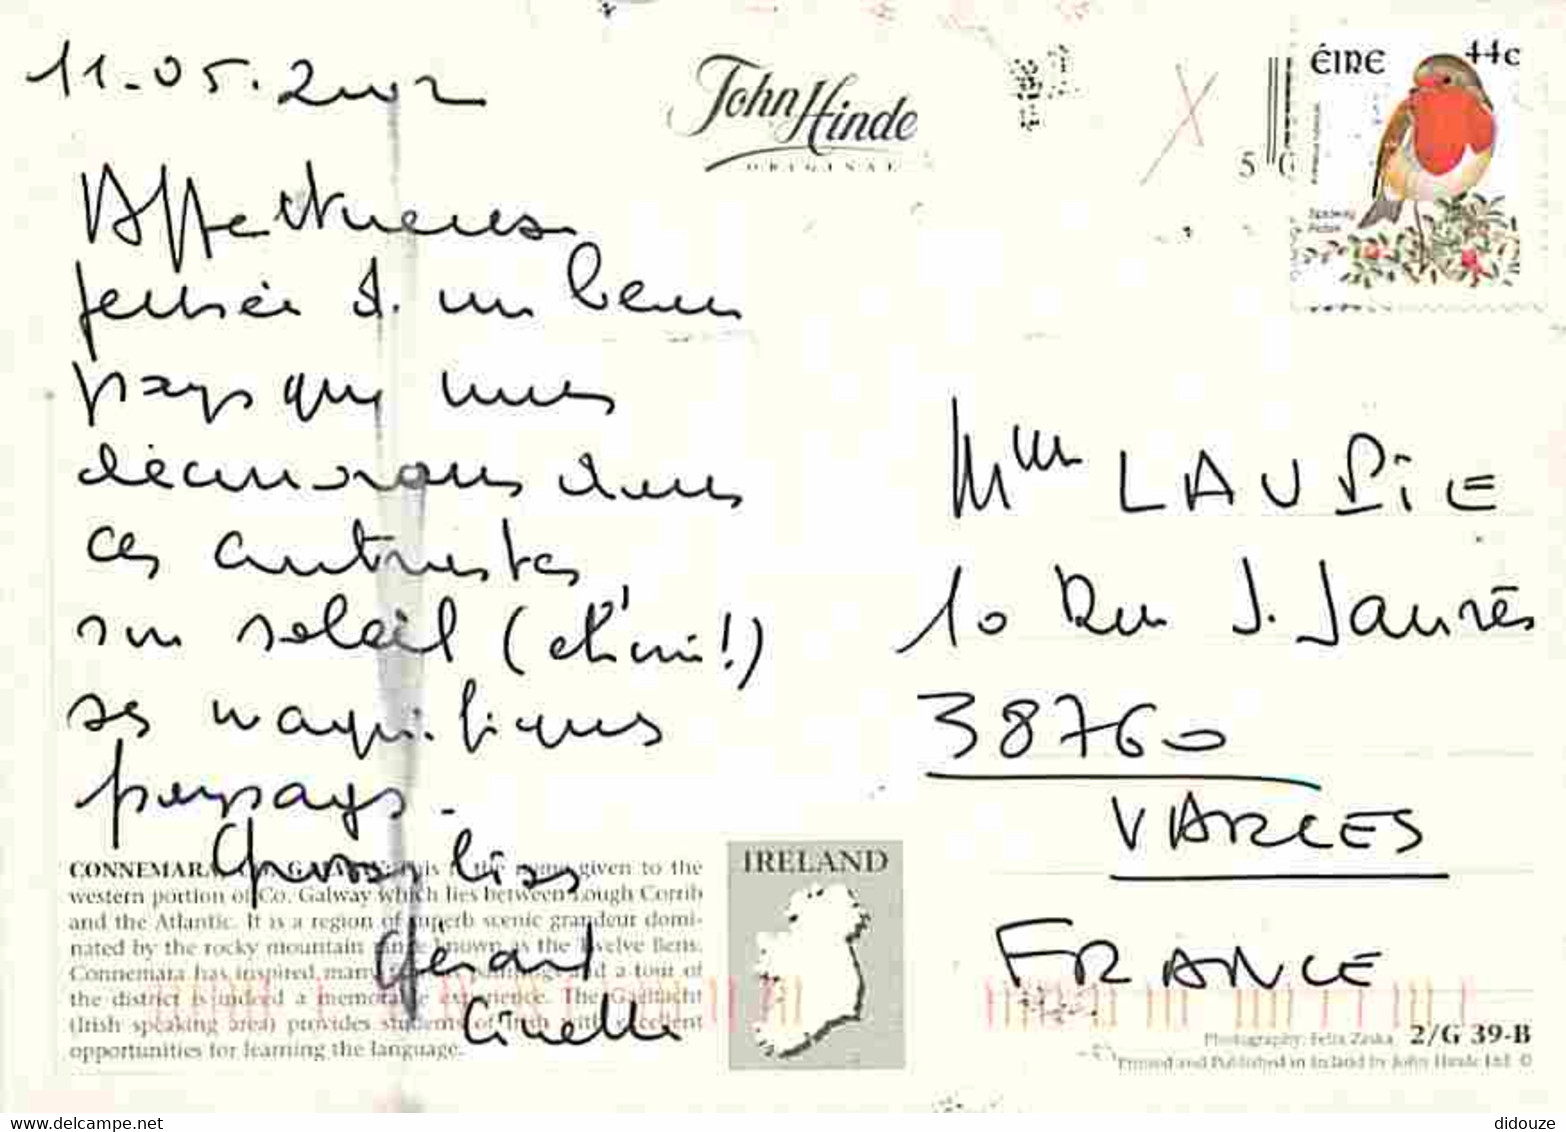 11.05.2002
John Hinde
ORIGINAL
ÉIRE 44c
5 0
Affectueuse
pensée d'un beau
pays que nous
découvrons dans
ces
son soleil (et oui!)
ses magnifiques
paysages.
Gérard
Mme LAUPIE
10 Rue J. Jaurès
38760
VARCES
FRANCE
CONNEMARA, CO. GALWAY: This is the name given to the
western portion of Co. Galway which lies between Lough Corrib
and the Atlantic. It is a region of superb scenic grandeur domi-
nated by the rocky mountain range known as the Twelve Bens.
Connemara has inspired many paintings and a tour of
the district is indeed a memorable experience. The Gaeltacht
(Irish speaking area) provides students of Irish with excellent
opportunities for learning the language.
IRELAND
Photography: Felix Zaska 2/G 39-B
Printed and Published in Ireland by John Hinde Ltd. ©
www.delcampe.net
didouze